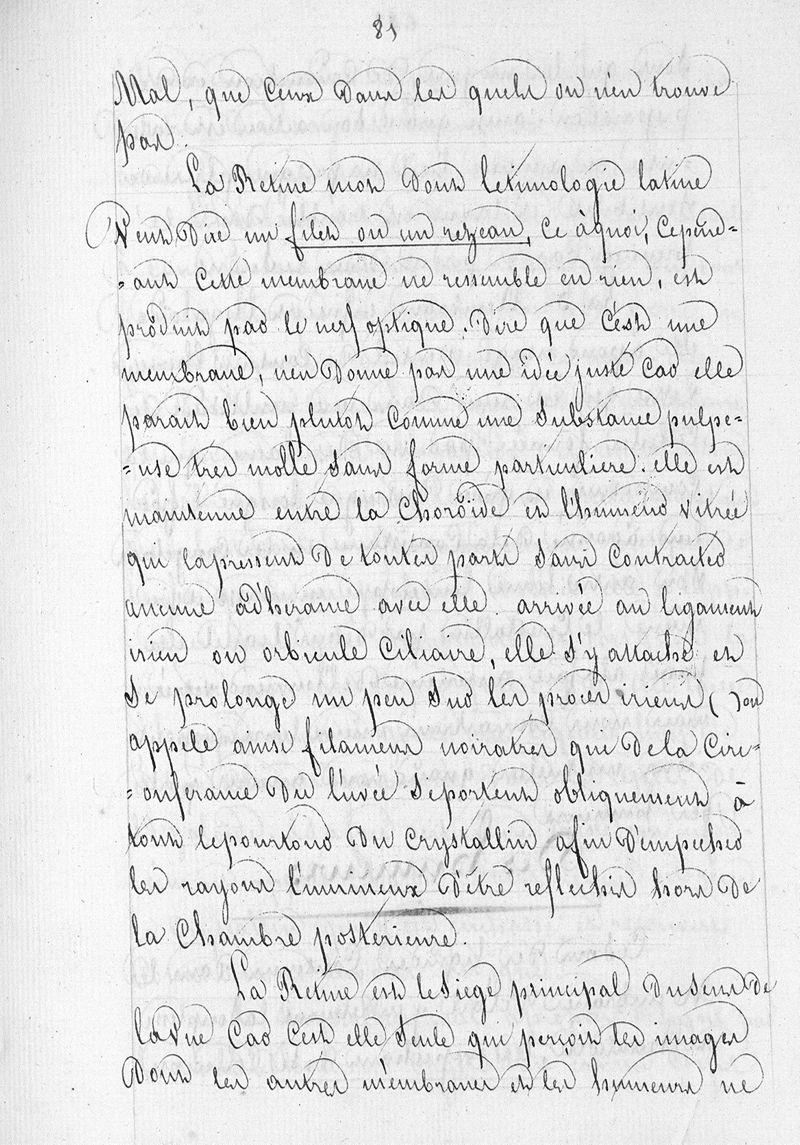 81
Mal, que ceux dans les quels on n'en trouve
pas.
La Retine mot dont letimologie latine
Veut dire un filet ou un retzeau, ce àquoi, cepend=
=ant cette membrane ne ressemble en rien, est
produit par le nerf optique. Dire que c'est une
membrane, n'en donne pas une idée juste car elle
parait bien plutot comme une substance pulpe=
=use tres molle sans forme particuliere. elle est
maintenue entre la Choroïde et l'humeur vitrée
qui lapressent de toutes parts sans contracter
aucune adherance avec elle. arrivée au ligament
irien ou orbicule ciliaire, elle s'y attache et
se prolonge un peu sur les procès iriens (on
appele ainsi filamens noiratres que de la circ=
=onferance du l'uvée seportent obliquement à
tout lepourtour du crystallin afin d'empecher
les rayons lumineux d'être reflechis hors de
la Chambre posterieure.
La Retine est lesiege principal dusens de
lavue car c'est elle seule qui perçoit les images
dont les autres membranes et les humeurs ne